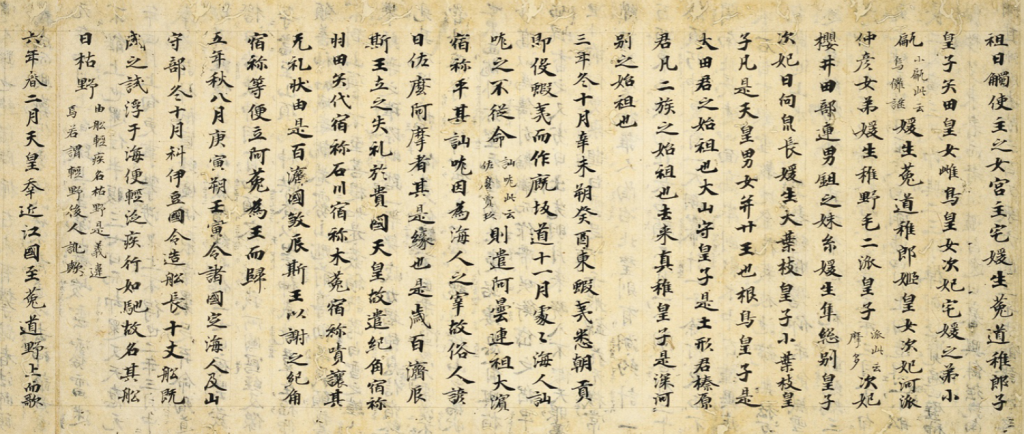 祖日觸使主之女宮主宅媛生菟道稚郎子
皇子矢田皇女雌鳥皇女次妃宅媛之弟小
甂小甂此云烏儺謎媛生菟道稚郎姬皇女次妃河派
仲彦女弟媛生稚野毛二派皇子派此云摩多次妃
櫻井田部連男鉏之妹糸媛生隼総别皇子
次妃日向泉長媛生大葉枝皇子小葉枝皇
子凡是天皇男女并廿王也根鳥皇子是
大田君之始祖也大山守皇子是土形君榛原
君凡二族之始祖也去来真稚皇子是深河
别之始祖也
三年冬十月辛未朔癸酉東蝦夷悉朝貢
即役蝦夷而作厩坂道十一月處〻海人訕
哤之不從命訕哤此云佐麼賣玖則遣阿曇連祖大濱
宿祢平其訕哤因為海人之宰故俗人諺
曰佐麼阿摩者其是緣也是歲百濟辰
斯王立之失礼於貴國天皇故遣紀角宿祢
羽田矢代宿祢石川宿祢木菟宿祢嘖讓其
无礼状由是百濟國煞辰斯王以謝之紀角
宿祢等便立阿菟為王而歸
五年秋八月庚寅朔壬寅令諸國定海人及山
守部冬十月科伊豆國令造舩長十丈舩既
成之試浮于海便輕泛疾行如馳故名其舩
曰枯野由舩輕疾名枯野是義違焉若謂輕野後人訛歟
六年春二月天皇幸近江國至菟道野上而歌